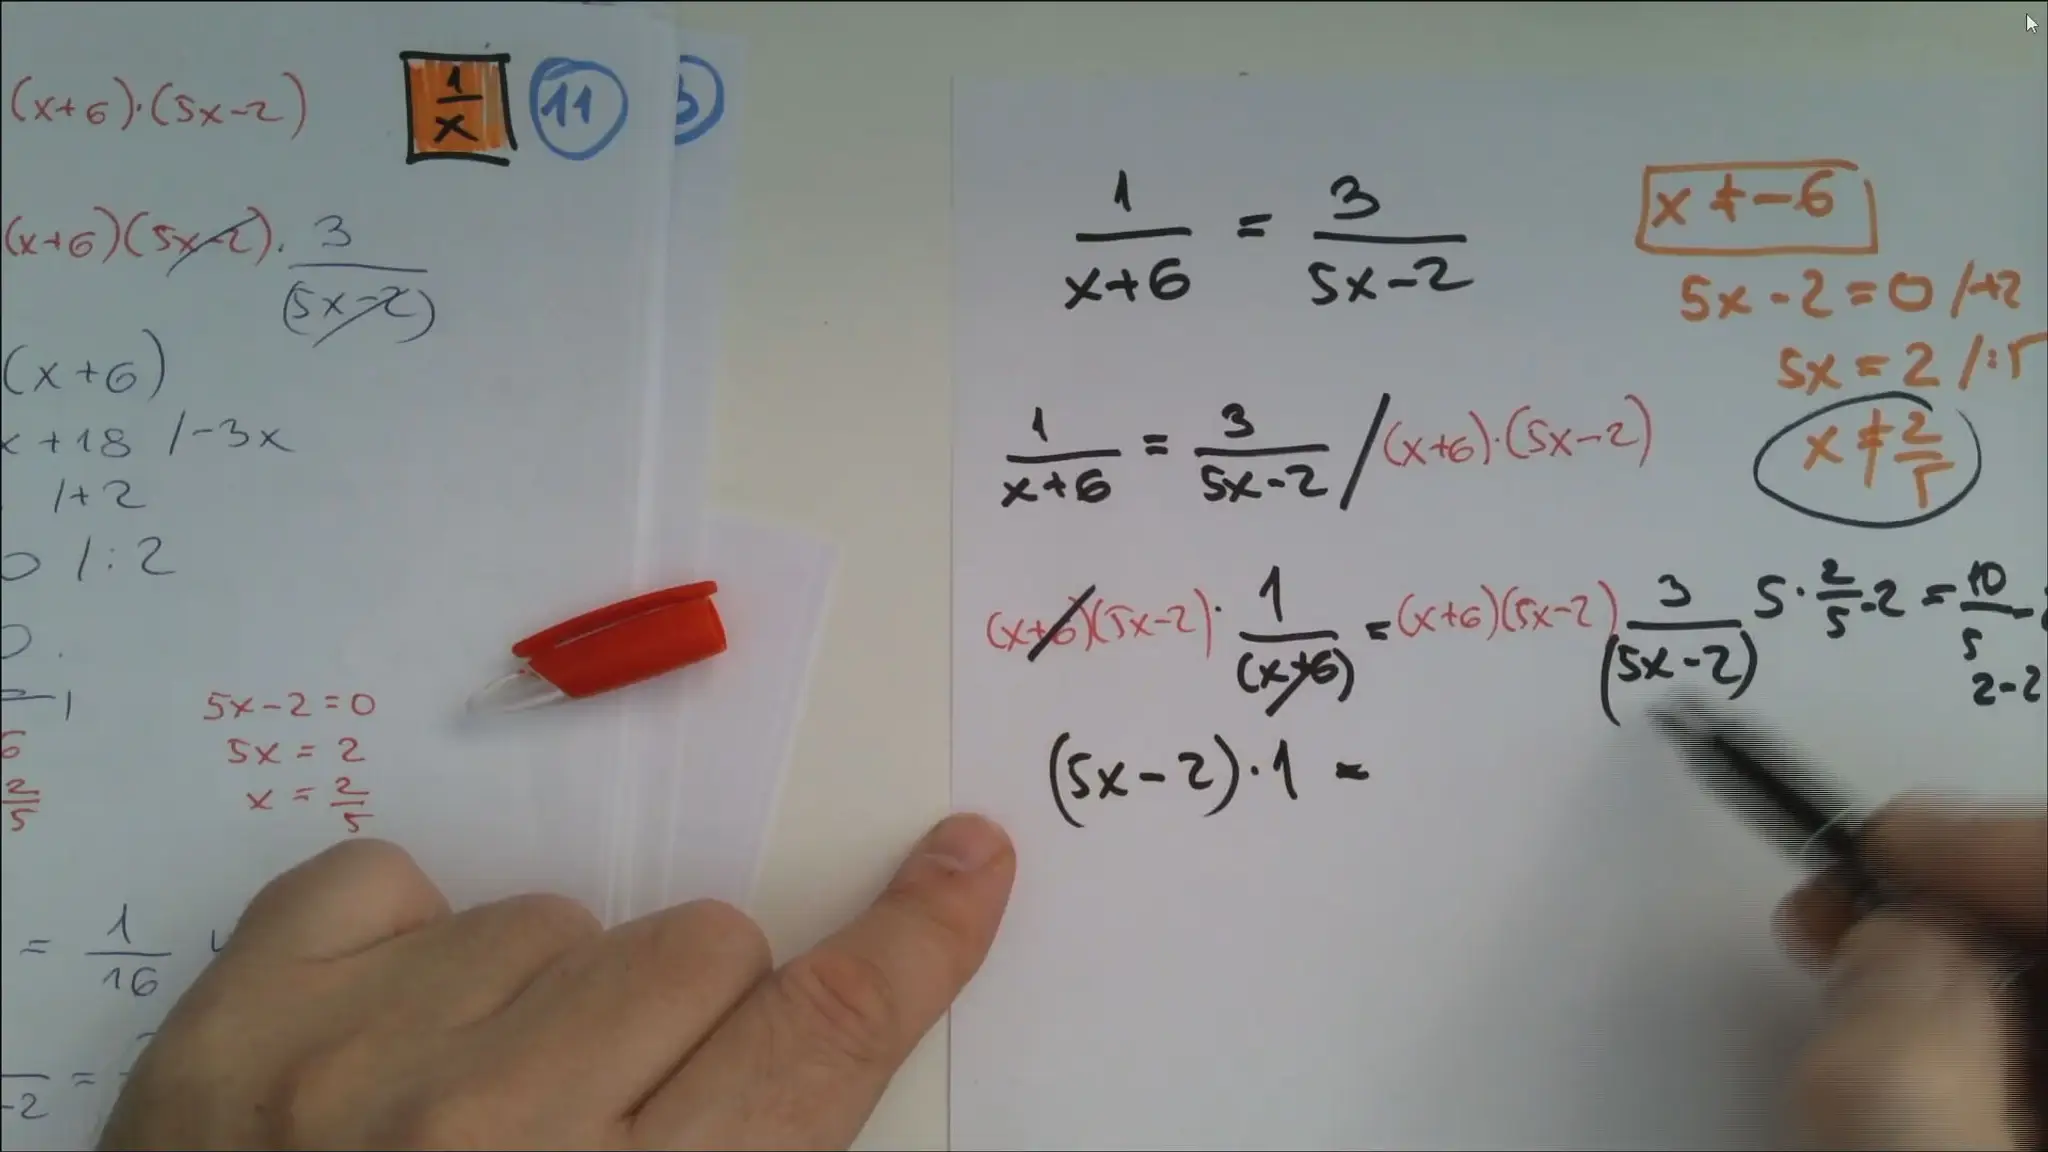 (x+6)·(5x-2)
1/x
11
(x+6)(5x-2)· 3/(5x-2)
(x+6)
x+18 /-3x
/+2
0 /:2
5x-2=0
5x = 2
x = 2/5
2/5
= 1/16
-2 =
1/(x+6) = 3/(5x-2)
x ≠ -6
5x-2=0 /+2
5x = 2 /:5
x ≠ 2/5
1/(x+6) = 3/(5x-2) / (x+6)·(5x-2)
(x+6)(5x-2)· 1/(x+6) = (x+6)(5x-2) 3/(5x-2)
5· 2/5 -2 = 10/5 -
2-2
(5x-2)·1 =